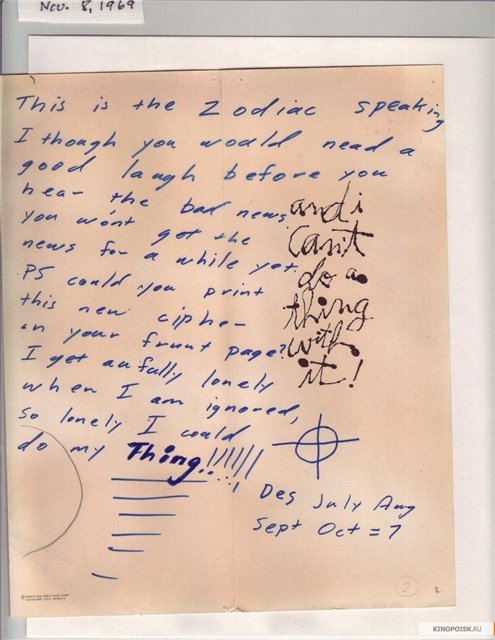 Nov. 8, 1969
This is the Zodiac speaking
I though you would nead a
good laugh before you
hear the bad news
you won't get the
news for a while yet.
PS could you print
this new cipher
on your frunt page?
I get awfully lonely
when I am ignored,
so lonely I could
do my Thing!!!!!!
and i
can't
do a
thing
with
it!
Des July Aug
Sept Oct = 7
2
KINOPOISK.RU